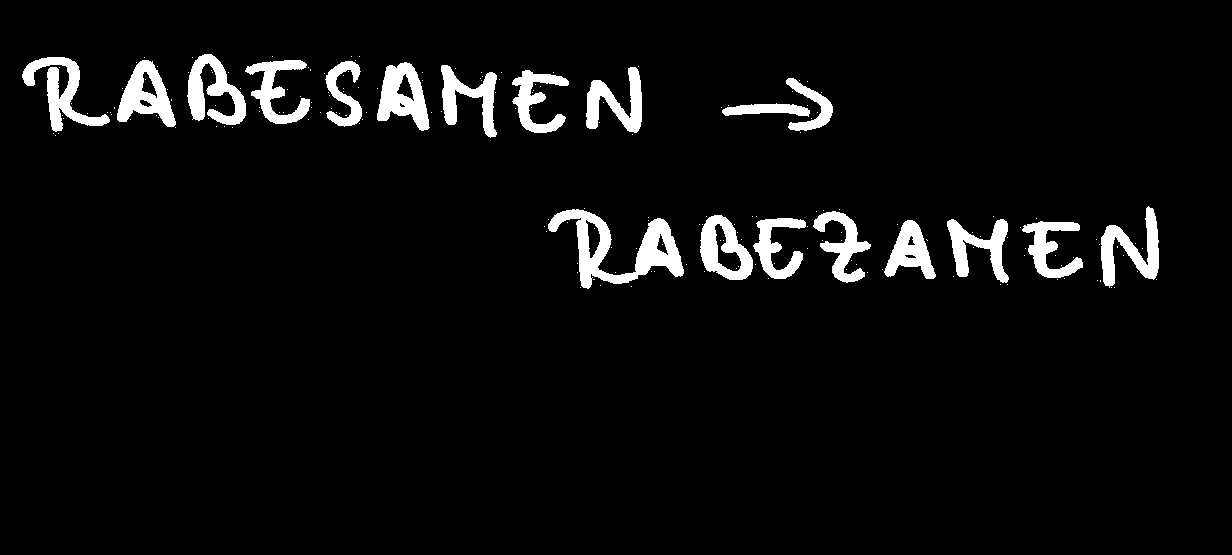 RABESAMEN →
RABEZAMEN